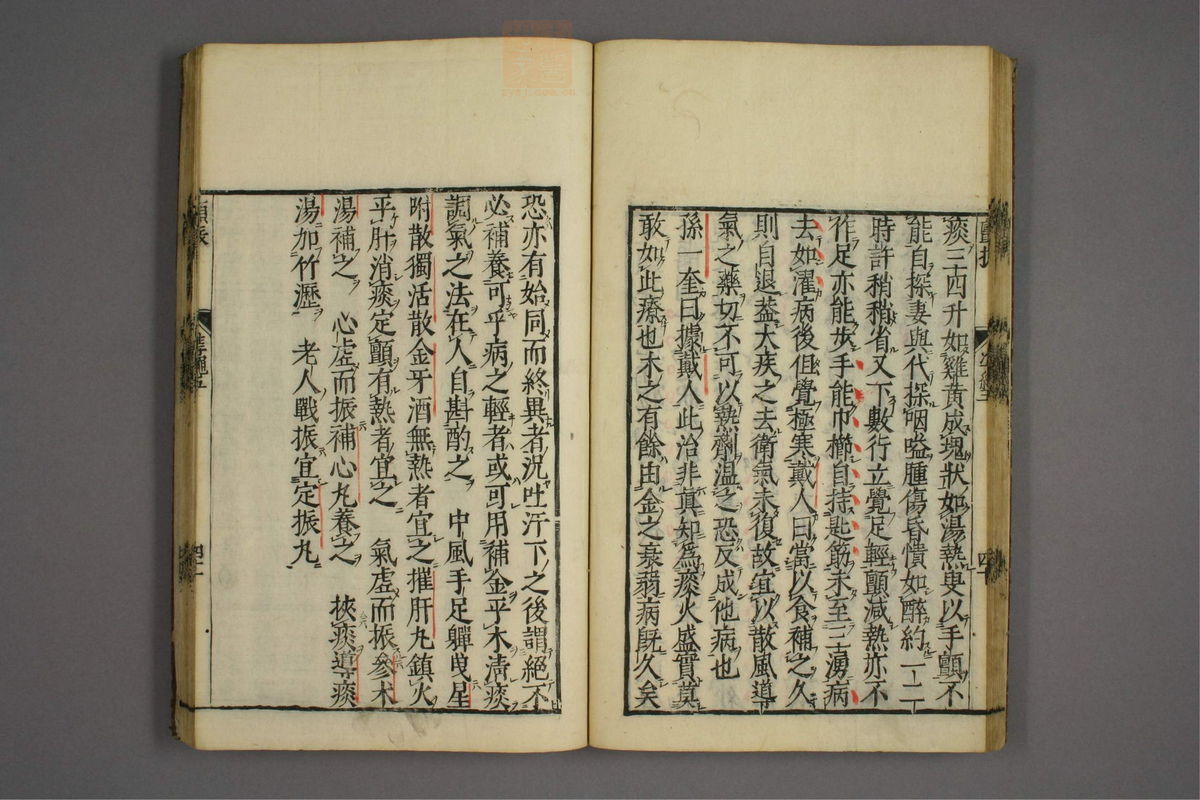 痰三四升如雞黃成塊狀如湯熱叟以手顫不
能自探妻與代探咽嗌腫傷昏憒如醉約一二
時許稍稍省又下數行立覺足輕顫減熱亦不
作足亦能步手能巾櫛自持匙筯未至三湧病
去如濯病後但覺極寒戴人曰當以食補之久
則自退蓋大疾之去衛氣未復故宜以散風導
氣之藥切不可以熱劑溫之恐反成他病也
孫一奎曰據戴人此治非真知為痰火盛實莫
敢如此療也木之有餘由金之衰弱病既久矣
恐亦有始同而終異者況吐汗下之後謂絕不
必補養可乎病之輕者或可用補金平木清痰
調氣之法在人自斟酌之 中風手足軃曳星
附散獨活散金牙酒無熱者宜之摧肝丸鎮火
平肝消痰定顫有熱者宜之 氣虛而振參朮
湯補之 心虛而振補心丸養之 挾痰導痰
湯加竹瀝 老人戰振宜定振丸